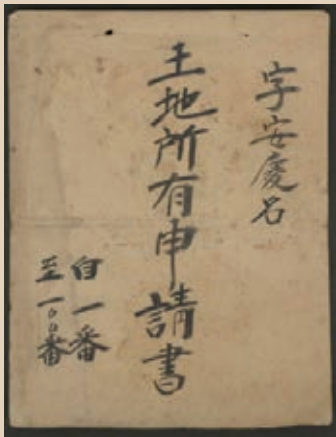 字安慶名
土地所有申請書
自一番
至一〇〇番